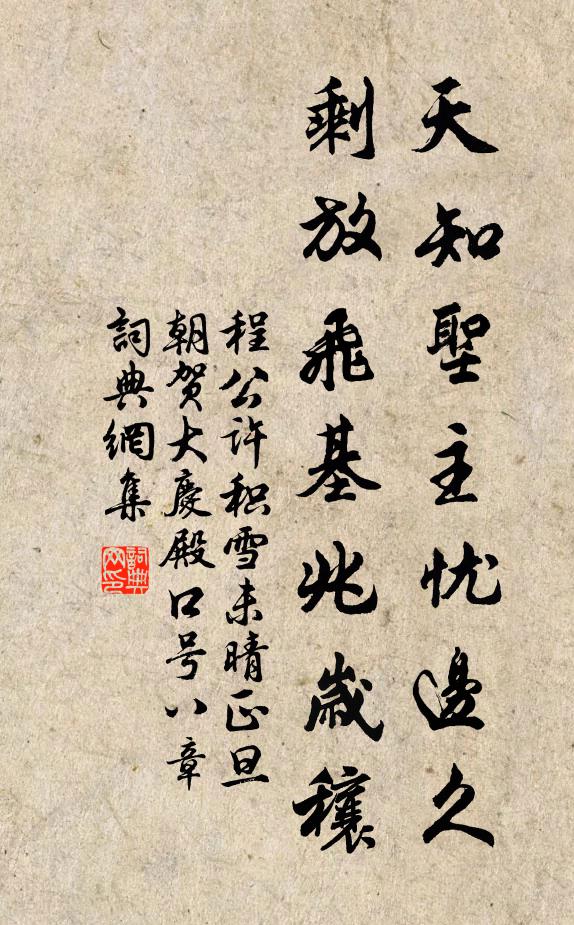 天知聖主忧邊久
剩放飛基兆歲穰
程公许积雪未晴正旦
朝贺大慶殿口号八章
詞典網集
詞典網印